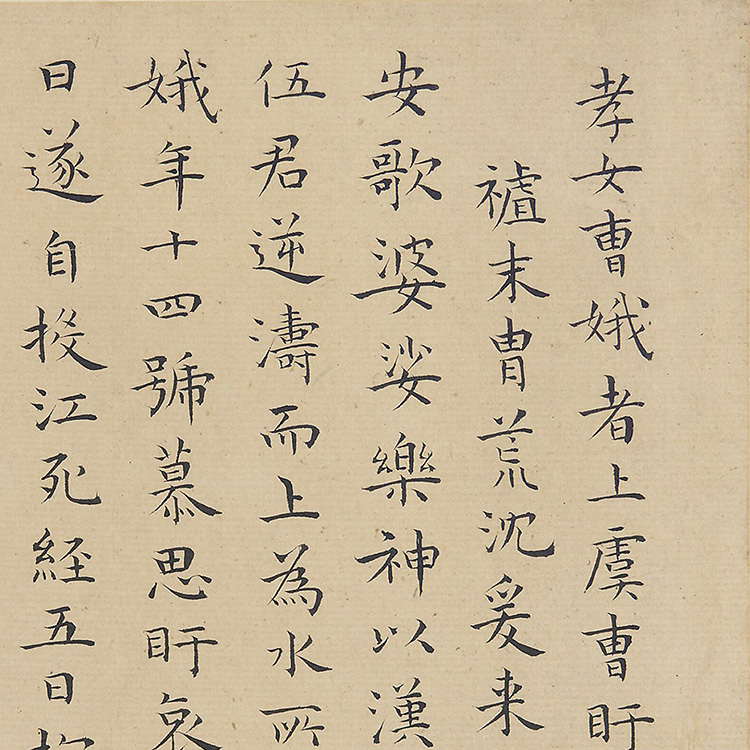 孝女曹娥者上虞曹盱
禇末冑荒沈爰来
安歌婆娑樂神以漢
伍君逆濤而上為水所
娥年十四號慕思盱哀
日遂自投江死経五日抱